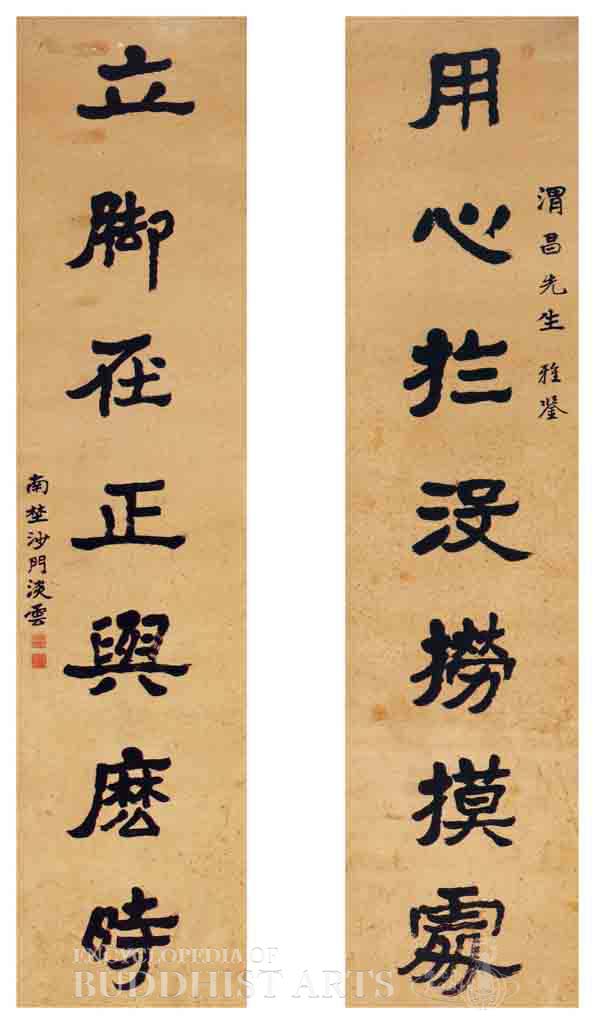 渭昌先生 雅鑒
用心於没撈摸處
立脚在正與麽時
南埜沙門淡雲
ENCYCLOPEDIA OF
BUDDHIST ARTS